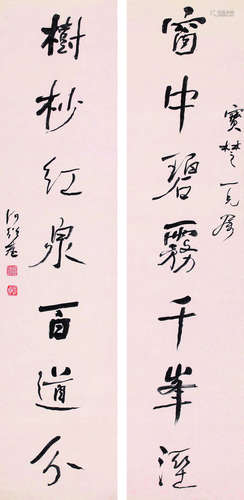 寶楚兄屬
窗中碧霧千峯溼
樹杪紅泉百道分
何紹基